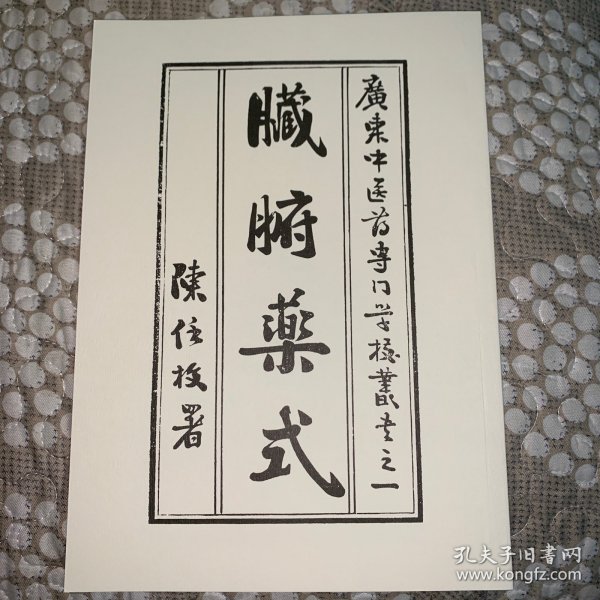 廣東中医药専门学校叢书之一
臟腑藥式
陳任枚署
孔夫子旧书网
www.kongfz.com